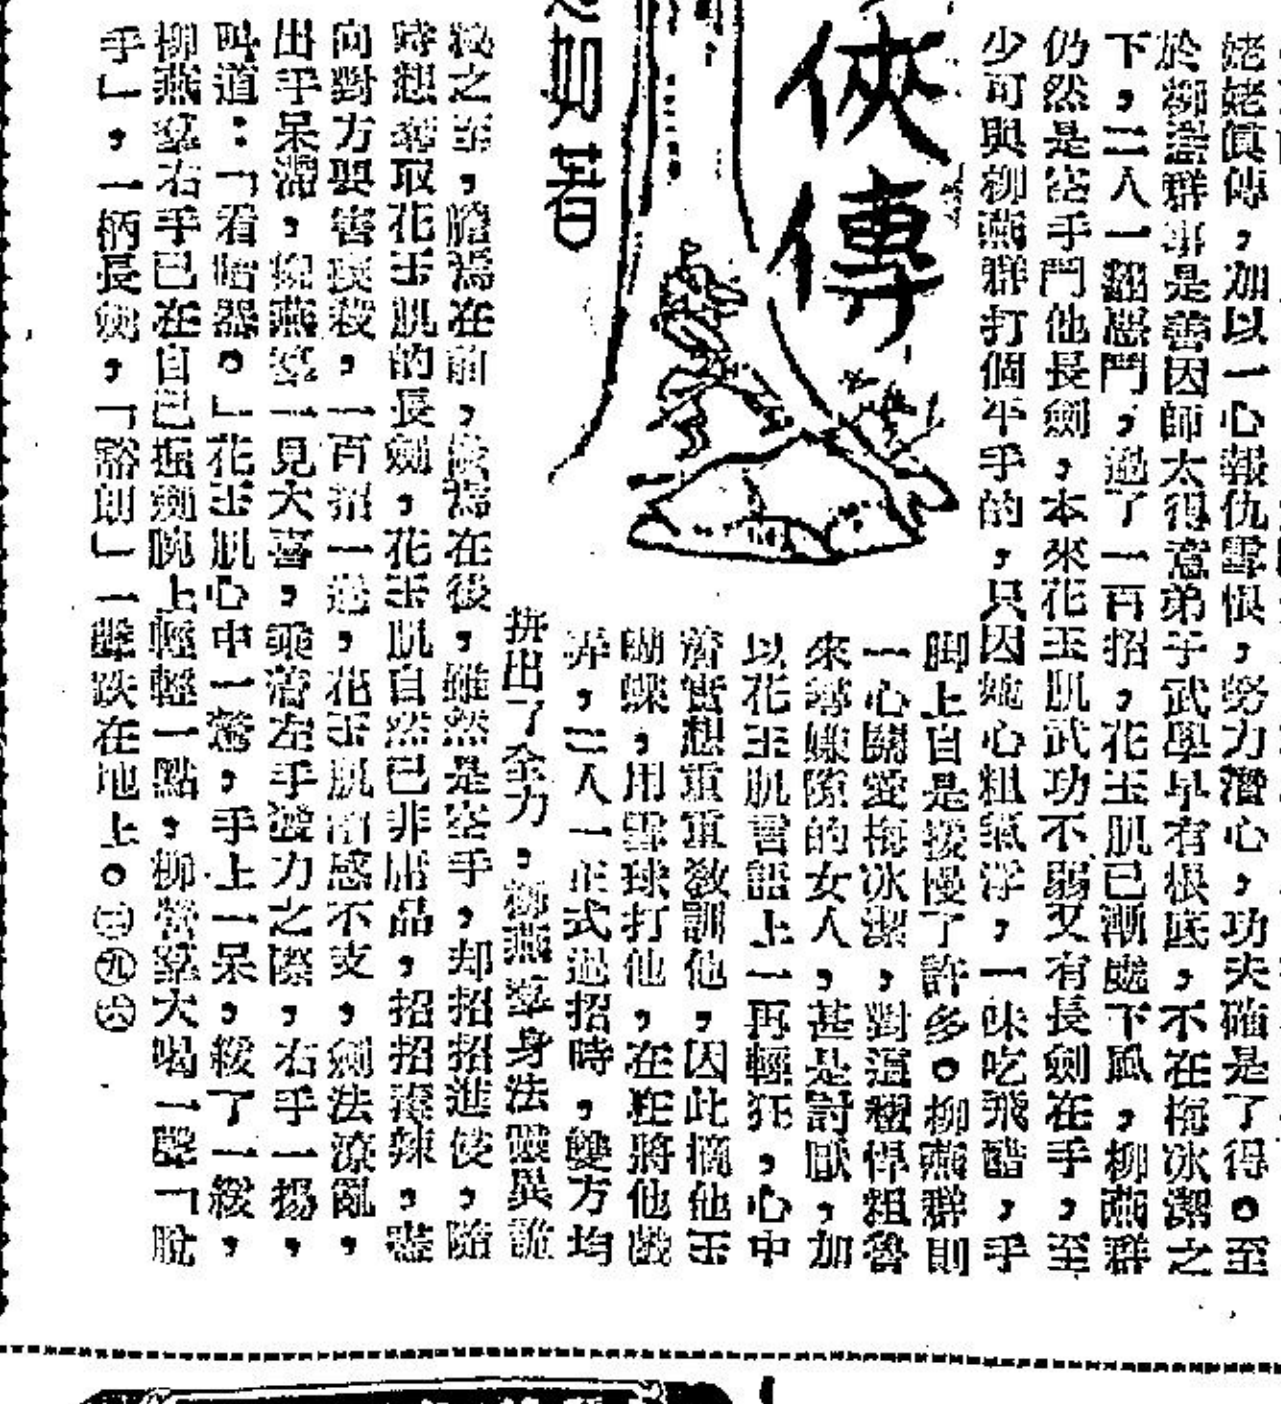 俠傳
如著
姥姥眞傳，加以一心報仇雪恨，努力潛心，功夫確是了得。至
於柳燕群事是善因師太得意弟子武學早有根底，不在梅冰潔之
下，二人一翻惡鬥，過了一百招，花玉肌已漸處下風，柳燕群
仍然是空手鬥他長劍，本來花玉肌武功不弱又有長劍在手，至
少可與柳燕群打個平手的，只因她心粗氣浮，一味吃飛醋，手
脚上自是緩慢了許多。柳燕群則
一心關愛梅冰潔，對這種悍粗魯
來尋嫌隙的女人，甚是討厭，加
以花玉肌言語上一再輕狂，心中
著實想重重敎訓他，因此摘他玉
蝴蝶，用雪球打他，在在將他戲
弄，二人一正式過招時，雙方均
拼出了全力，柳燕羣身法靈異詭
之至，瞻焉在前，後焉在後，雖然是空手，却招招進使，隨
時想奪取花玉肌的長劍，花玉肌自然已非庸品，招招辣，
向對方要害殺，一百招一過，花玉肌漸感不支，劍法潦亂，
出手呆滯，柳燕羣一見大喜，乘著左手發力之際，右手一揚，
叫道：「看暗器。」花玉肌心中一驚，手上一呆，緩了一緩，
柳燕羣右手已在自己腕上輕輕一點，柳營羣大喝一聲「脫
手」，一柄長劍，「豁朗」一聲跌在地上。㊂㊈㊅